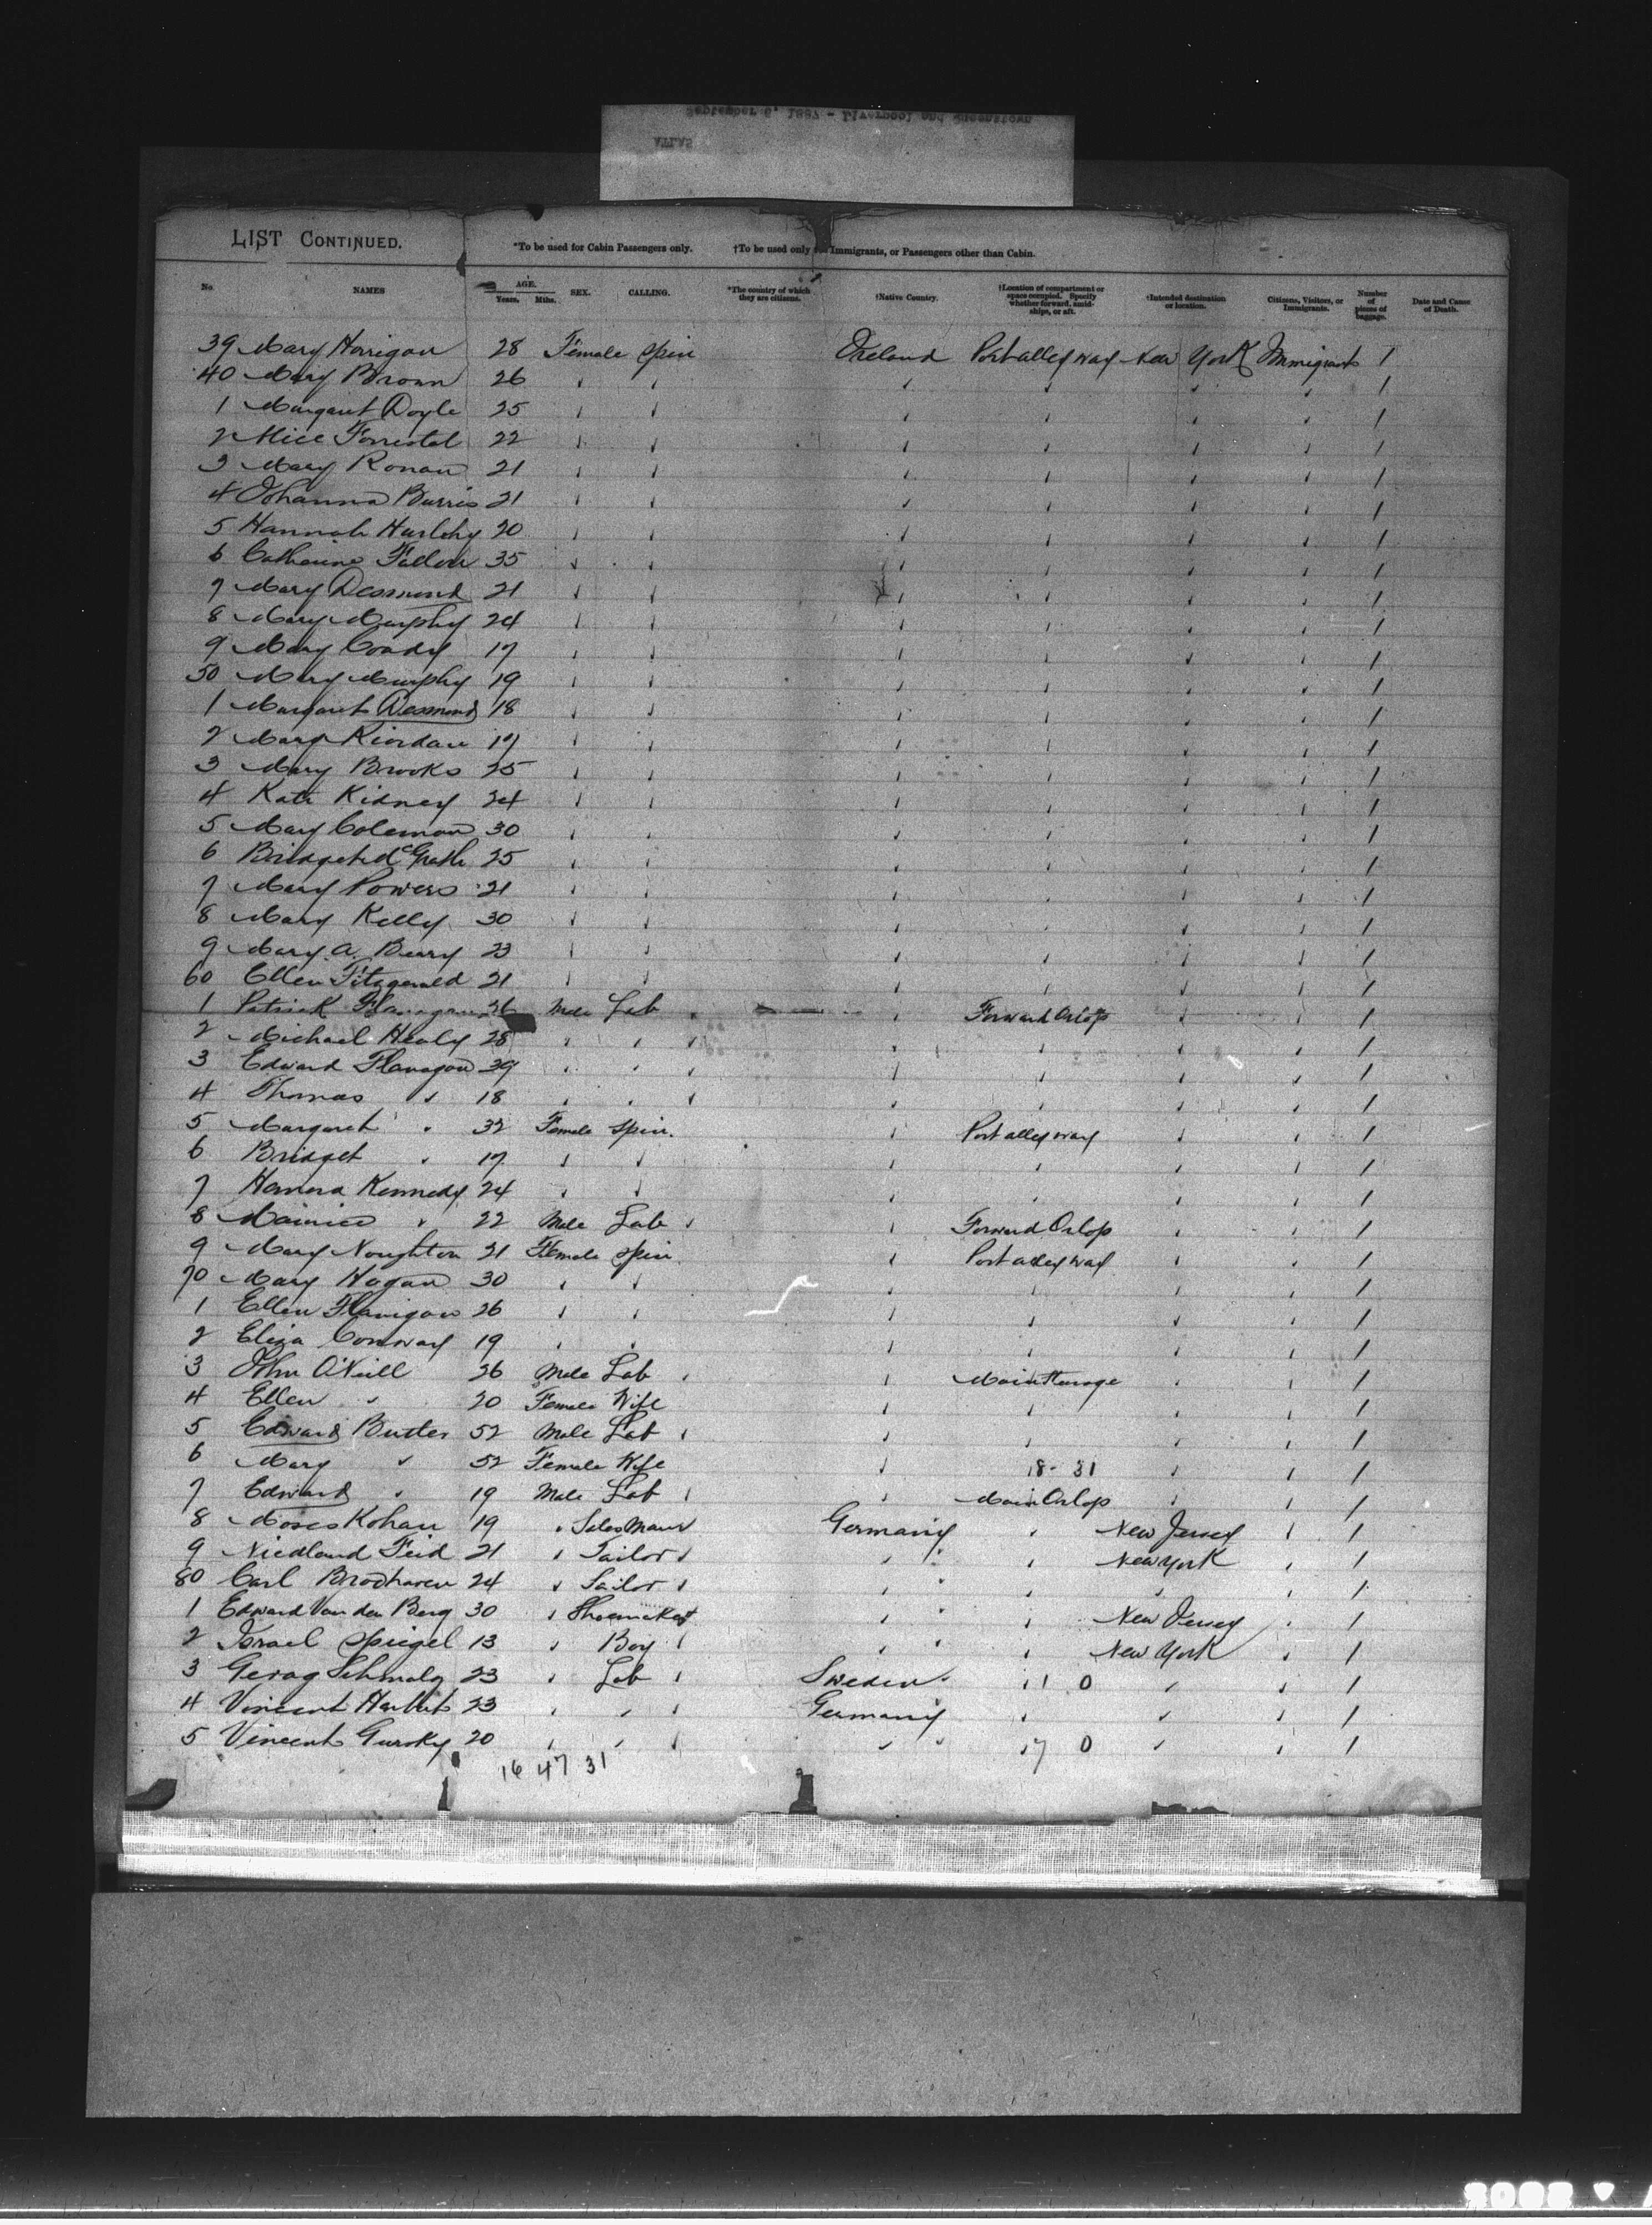 September 6, 1887 - Liverpool and Queenstown
ATLAS
LIST CONTINUED.
*To be used for Cabin Passengers only. †To be used only Immigrants, or Passengers other than Cabin.
No. NAMES AGE. Years. Mths. SEX. CALLING. *The country of which they are citizens. †Native Country. †Location of compartment or space occupied. Specify whether forward, amidships, or aft. †Intended destination or location. Citizens, Visitors, or Immigrants. Number of pieces of baggage. Date and Cause of Death.
39 Mary Horrigan 28 Female Spin Ireland Port alley way New York Immigrants 1
40 Mary Brown 26 " " " " " " 1
1 Margaret Doyle 25 " " " " " " 1
2 Alice Forrestal 22 " " " " " " 1
3 Mary Ronan 21 " " " " " " 1
4 Johanna Burris 21 " " " " " " 1
5 Hannah Hurlehy 20 " " " " " " 1
6 Catherine Fallon 35 " " " " " " 1
7 Mary Desmond 21 " " " " " " 1
8 Mary Murphy 24 " " " " " " 1
9 Mary Coady 17 " " " " " " 1
50 Mary Murphy 19 " " " " " " 1
1 Margaret Desmond 18 " " " " " " 1
2 Mary Riordan 17 " " " " " " 1
3 Mary Brooks 25 " " " " " " 1
4 Kate Kidney 24 " " " " " " 1
5 Mary Coleman 30 " " " " " " 1
6 Bridget McGrath 25 " " " " " " 1
7 Mary Powers 21 " " " " " " 1
8 Mary Kelly 30 " " " " " " 1
9 Mary A. Berry 23 " " " " " " 1
60 Ellen Fitzgerald 21 " " " " " " 1
1 Patrick Flanagan 26 Male Lab " Forward Orlop " " 1
2 Michael Healy 28 " " " " " " 1
3 Edward Flanagan 39 " " " " " " 1
4 Thomas " 18 " " " " " " 1
5 Margaret " 32 Female Spin. " Port alley way " " 1
6 Bridget " 17 " " " " " " 1
7 Hanora Kennedy 24 " " " " " " 1
8 Maurice " 22 Male Lab " Forward Orlop " " 1
9 Mary Noughton 21 Female Spin " Port alley way " " 1
70 Mary Hogan 30 " " " " " " 1
1 Ellen Flanigan 26 " " " " " " 1
2 Eliza Conway 19 " " " " " " 1
3 John O'Neill 26 Male Lab " Main Steerage " " 1
4 Ellen " 20 Female Wife " " " " 1
5 Edward Butler 52 Male Lab " " " " 1
6 Mary " 52 Female Wife " 18 - 31 " " 1
7 Edward " 19 Male Lab " Main Orlop " " 1
8 Moses Kohan 19 " Salesman Germany " New Jersey " 1
9 Niedland Feid 21 " Tailor " " New York " 1
80 Carl Brodharen 24 " Sailor " " " " 1
1 Edward Van den Berg 30 " Shoemaker " " New Jersey " 1
2 Israel Spiegel 13 " Boy " " New York " 1
3 Gerog Schmalz 23 " Lab Sweden " 1 0 " " 1
4 Vincent 23 " " Germany " " " 1
5 Vincent Gursky 20 " " " " 7 0 " " 1
16 47 31